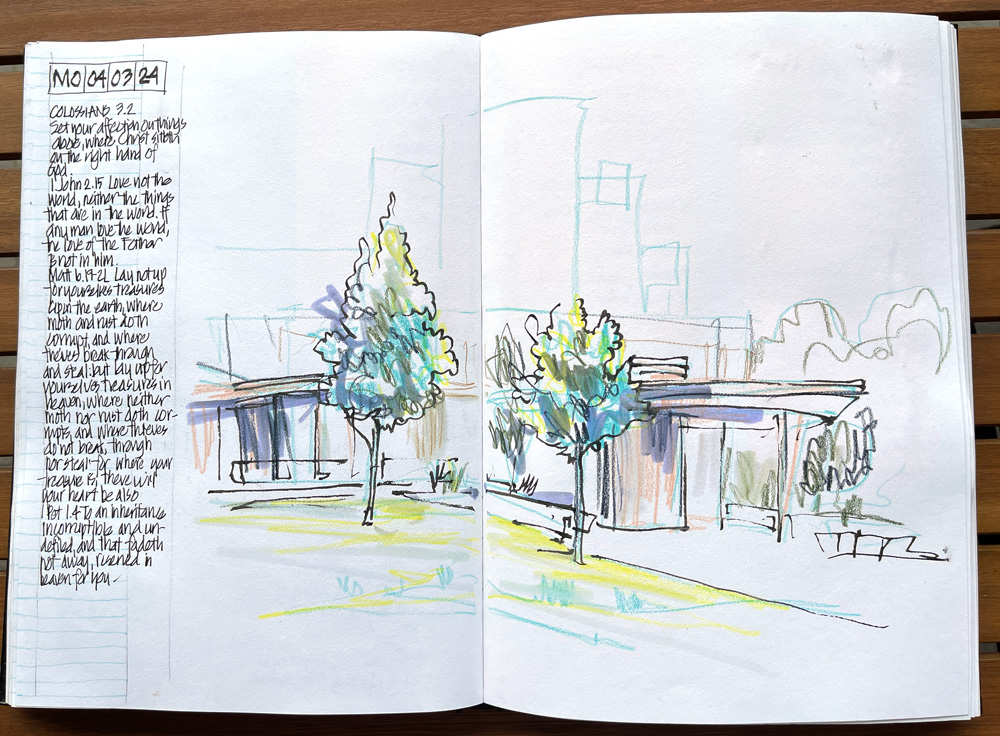 MO 04 03 24
COLOSSIANS 3.2
Set your affection on things
above, where Christ sitteth
on the right hand of
God.
1 John 2.15 Love not the
world, neither the things
that are in the world. If
any man love the world,
the love of the Father
is not in him.
Matt 6.19-21 Lay not up
for yourselves treasures
upon the earth, where
moth and rust doth
corrupt, and where
thieves break through
and steal: but lay up for
yourselves treasures in
heaven, where neither
moth nor rust doth cor-
rupts, and where thieves
do not break through
nor steal: for where your
treasure is, there will
your heart be also
1 Pet 1.4 To an inheritance
incorruptible and un-
defiled, and that fadeth
not away, reserved in
heaven for you.